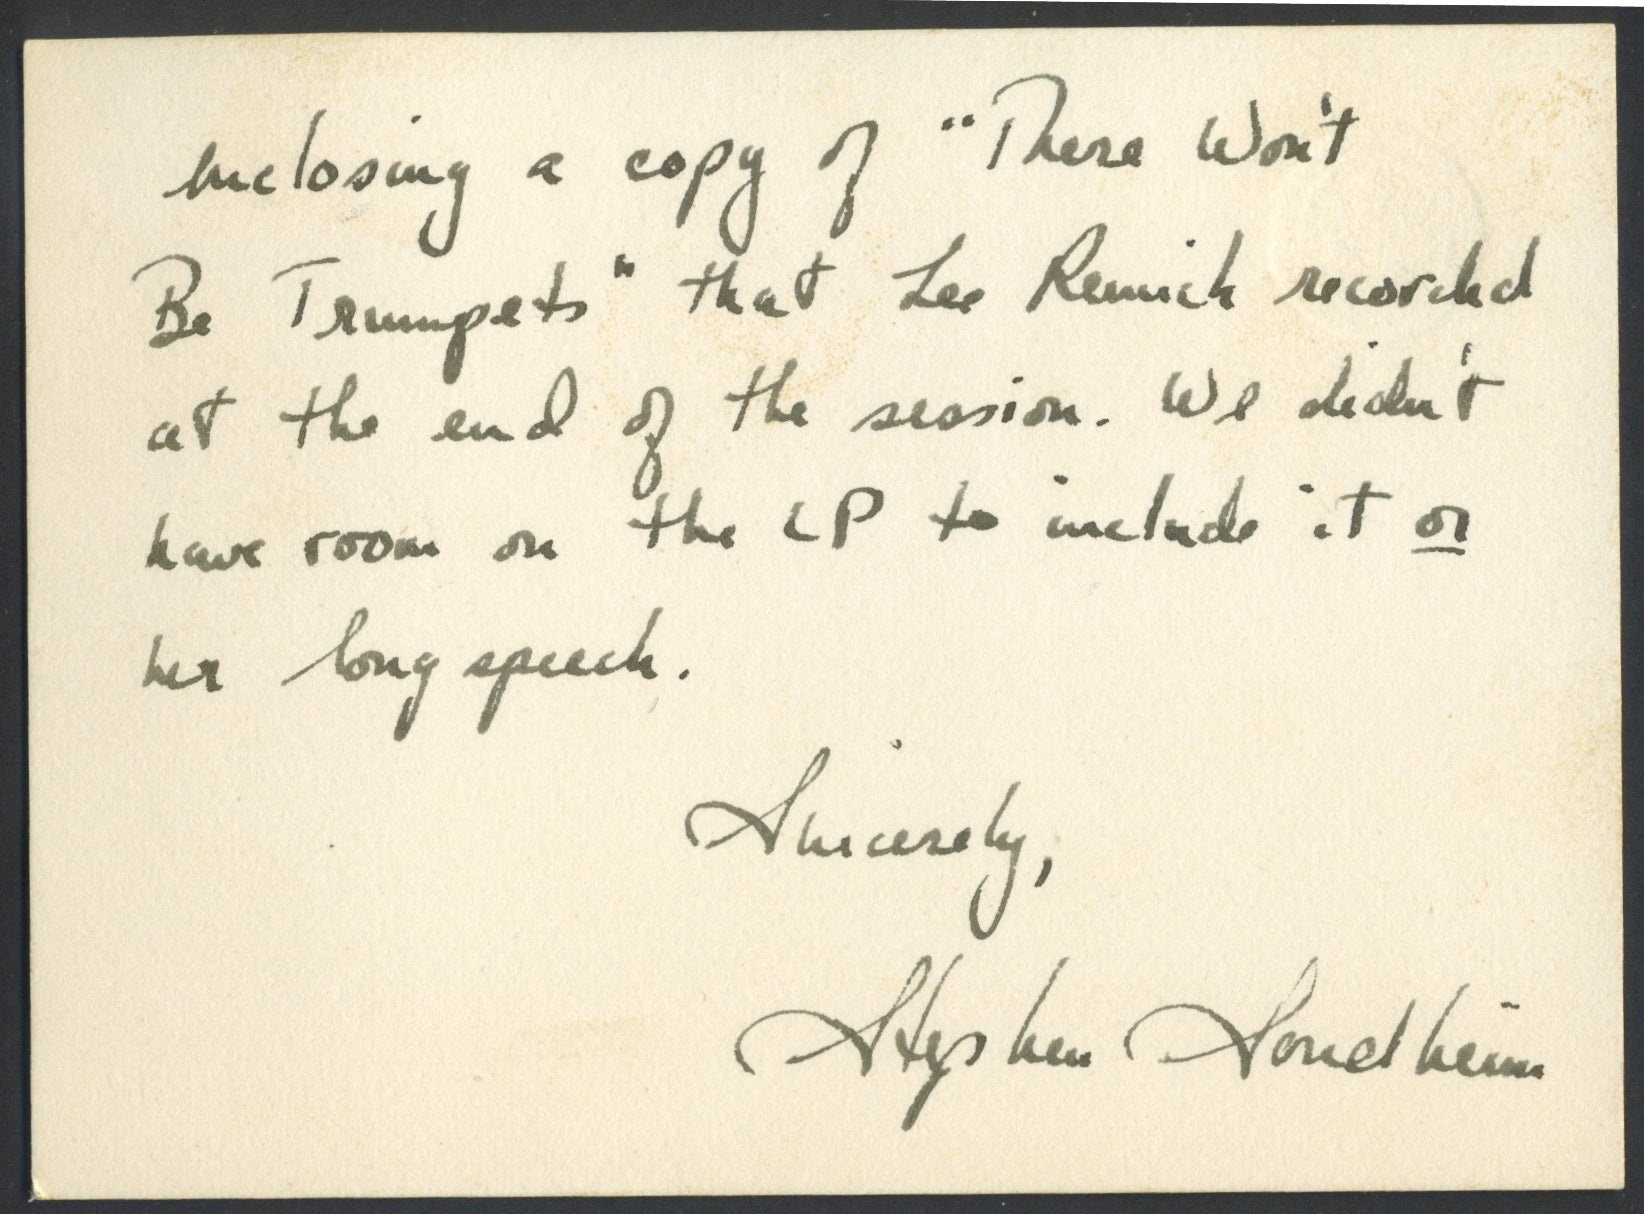 enclosing a copy of "There Won't
Be Trumpets" that Lee Remick recorded
at the end of the session. We didn't
have room on the LP to include it or
her long speech.
Sincerely,
Stephen Sondheim